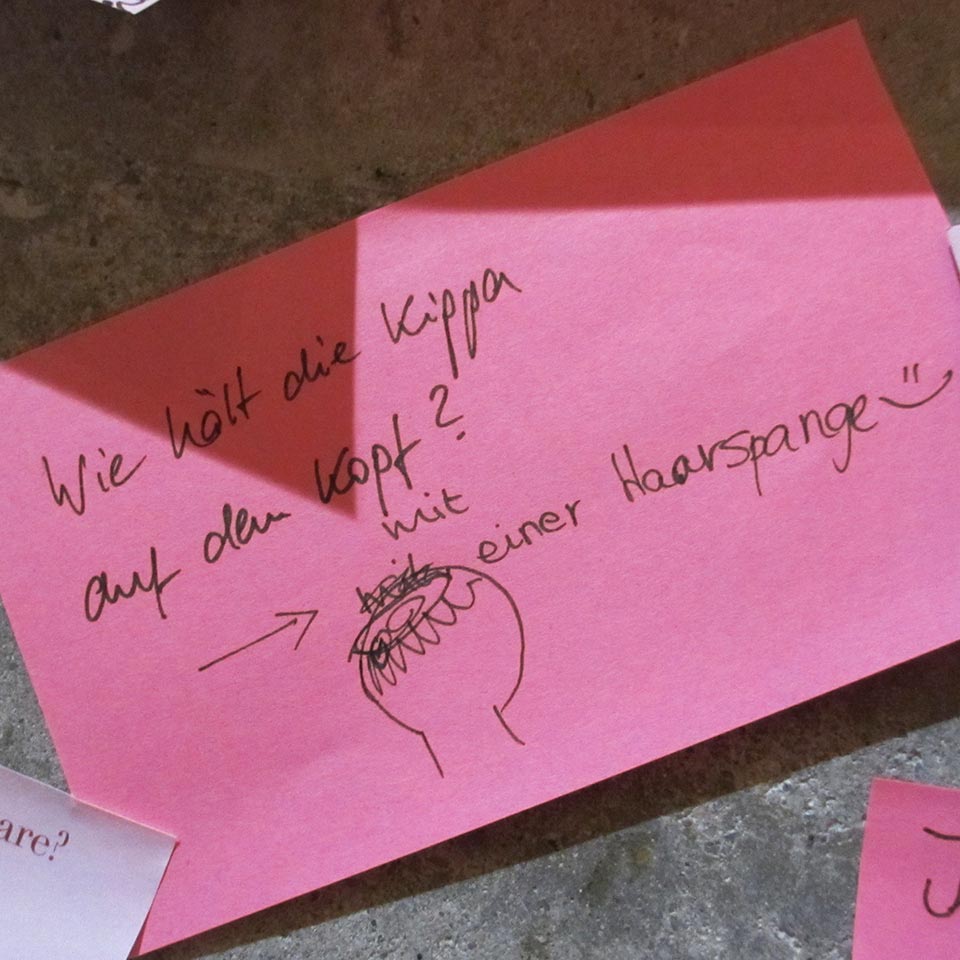 Wie hält die Kippa
auf dem Kopf?
mit
einer Haarspange
are?
J